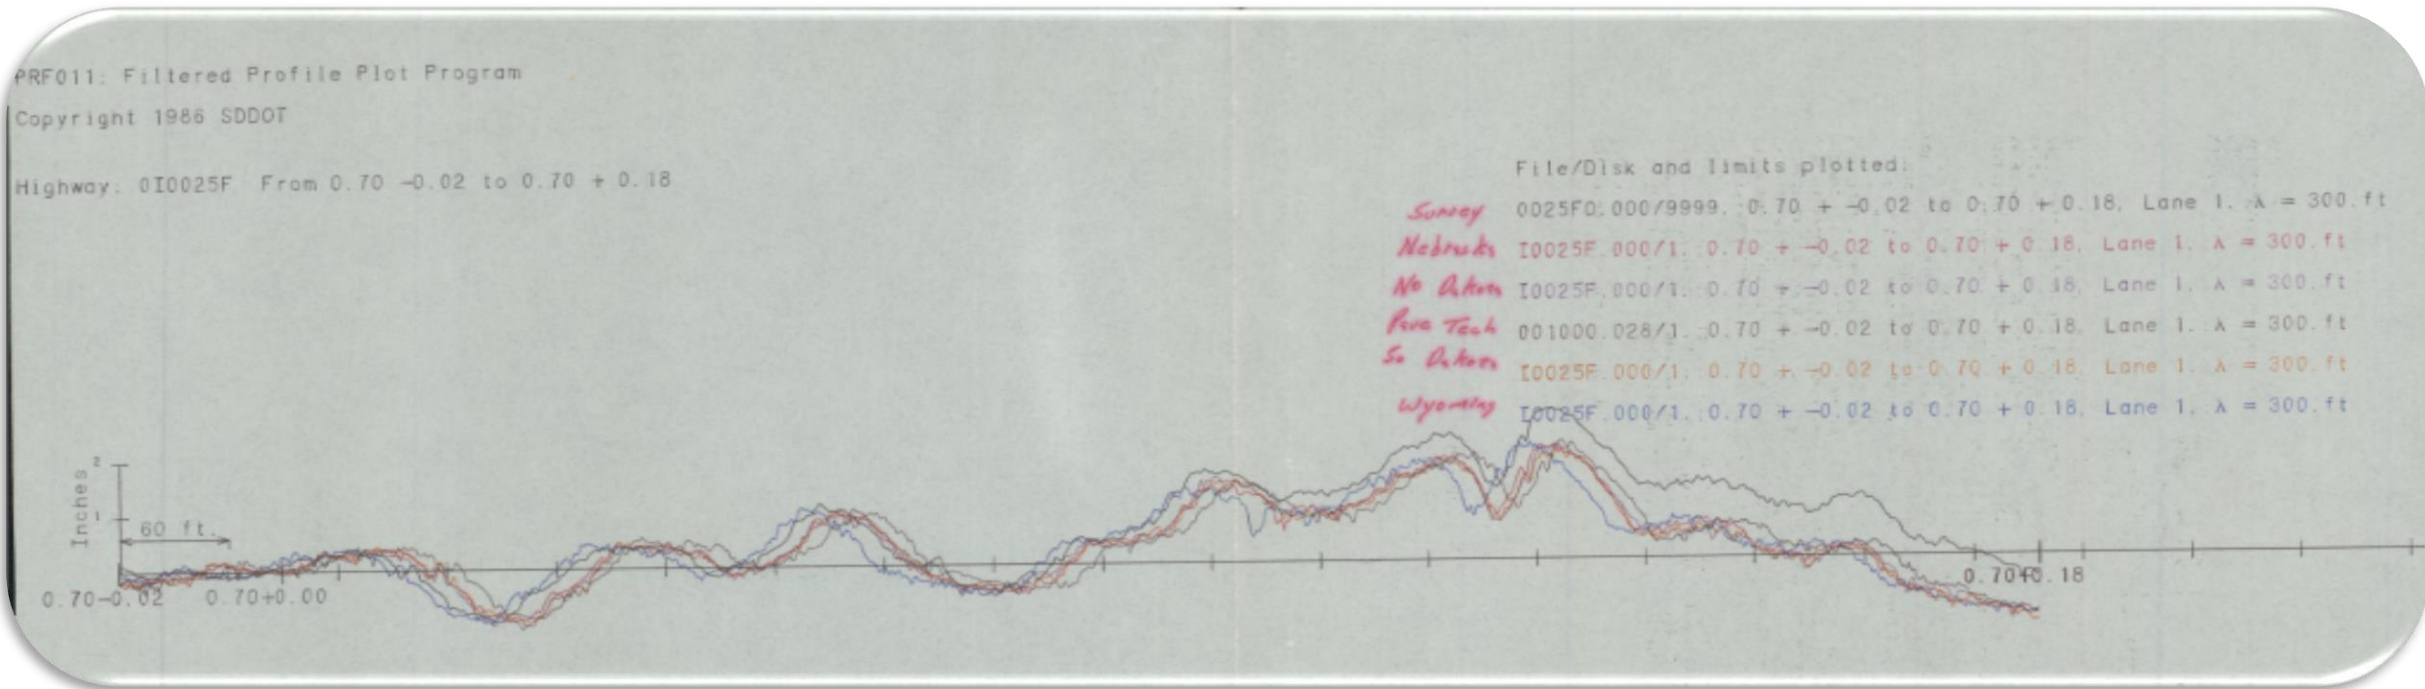 PRF011: Filtered Profile Plot Program
Copyright 1986 SDDOT
Highway: 0I0025F From 0.70 -0.02 to 0.70 + 0.18
File/Disk and limits plotted:
Survey 0025FO.000/9999. 0.70 + -0.02 to 0.70 + 0.18, Lane 1. λ = 300.ft
Nebraska I0025F.000/1. 0.70 + -0.02 to 0.70 + 0.18, Lane 1. λ = 300.ft
No Dakota I0025F.000/1. 0.70 + -0.02 to 0.70 + 0.18, Lane 1. λ = 300.ft
Pave Tech 001000.028/1. 0.70 + -0.02 to 0.70 + 0.18, Lane 1. λ = 300.ft
So Dakota I0025F.000/1. 0.70 + -0.02 to 0.70 + 0.18, Lane 1. λ = 300.ft
Wyoming I0025F.000/1. 0.70 + -0.02 to 0.70 + 0.18, Lane 1. λ = 300.ft
2
Inches
1
60 ft.
0.70-0.02 0.70+0.00
0.70+0.18